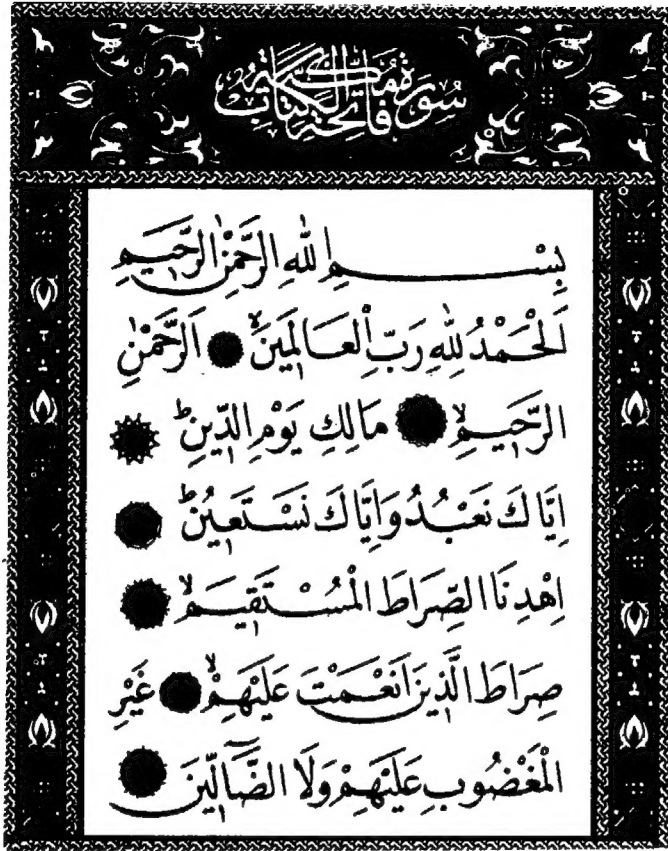 سُورَةُ فَاتِحَةِ الْكِتَابِ مَكِّيَّةٌ
بِسْمِ اللّٰهِ الرَّحْمٰنِ الرَّحِيمِ
اَلْحَمْدُ لِلّٰهِ رَبِّ الْعَالَمِينَۙ اَلرَّحْمٰنِ
الرَّحِيمِۙ مَالِكِ يَوْمِ الدِّينِۜ
اِيَّاكَ نَعْبُدُ وَاِيَّاكَ نَسْتَعِينُۜ
اِهْدِنَا الصِّرَاطَ الْمُسْتَقِيمَۙ
صِرَاطَ الَّذِينَ اَنْعَمْتَ عَلَيْهِمْۙ غَيْرِ
الْمَغْضُوبِ عَلَيْهِمْ وَلَا الضَّٓالِّينَ